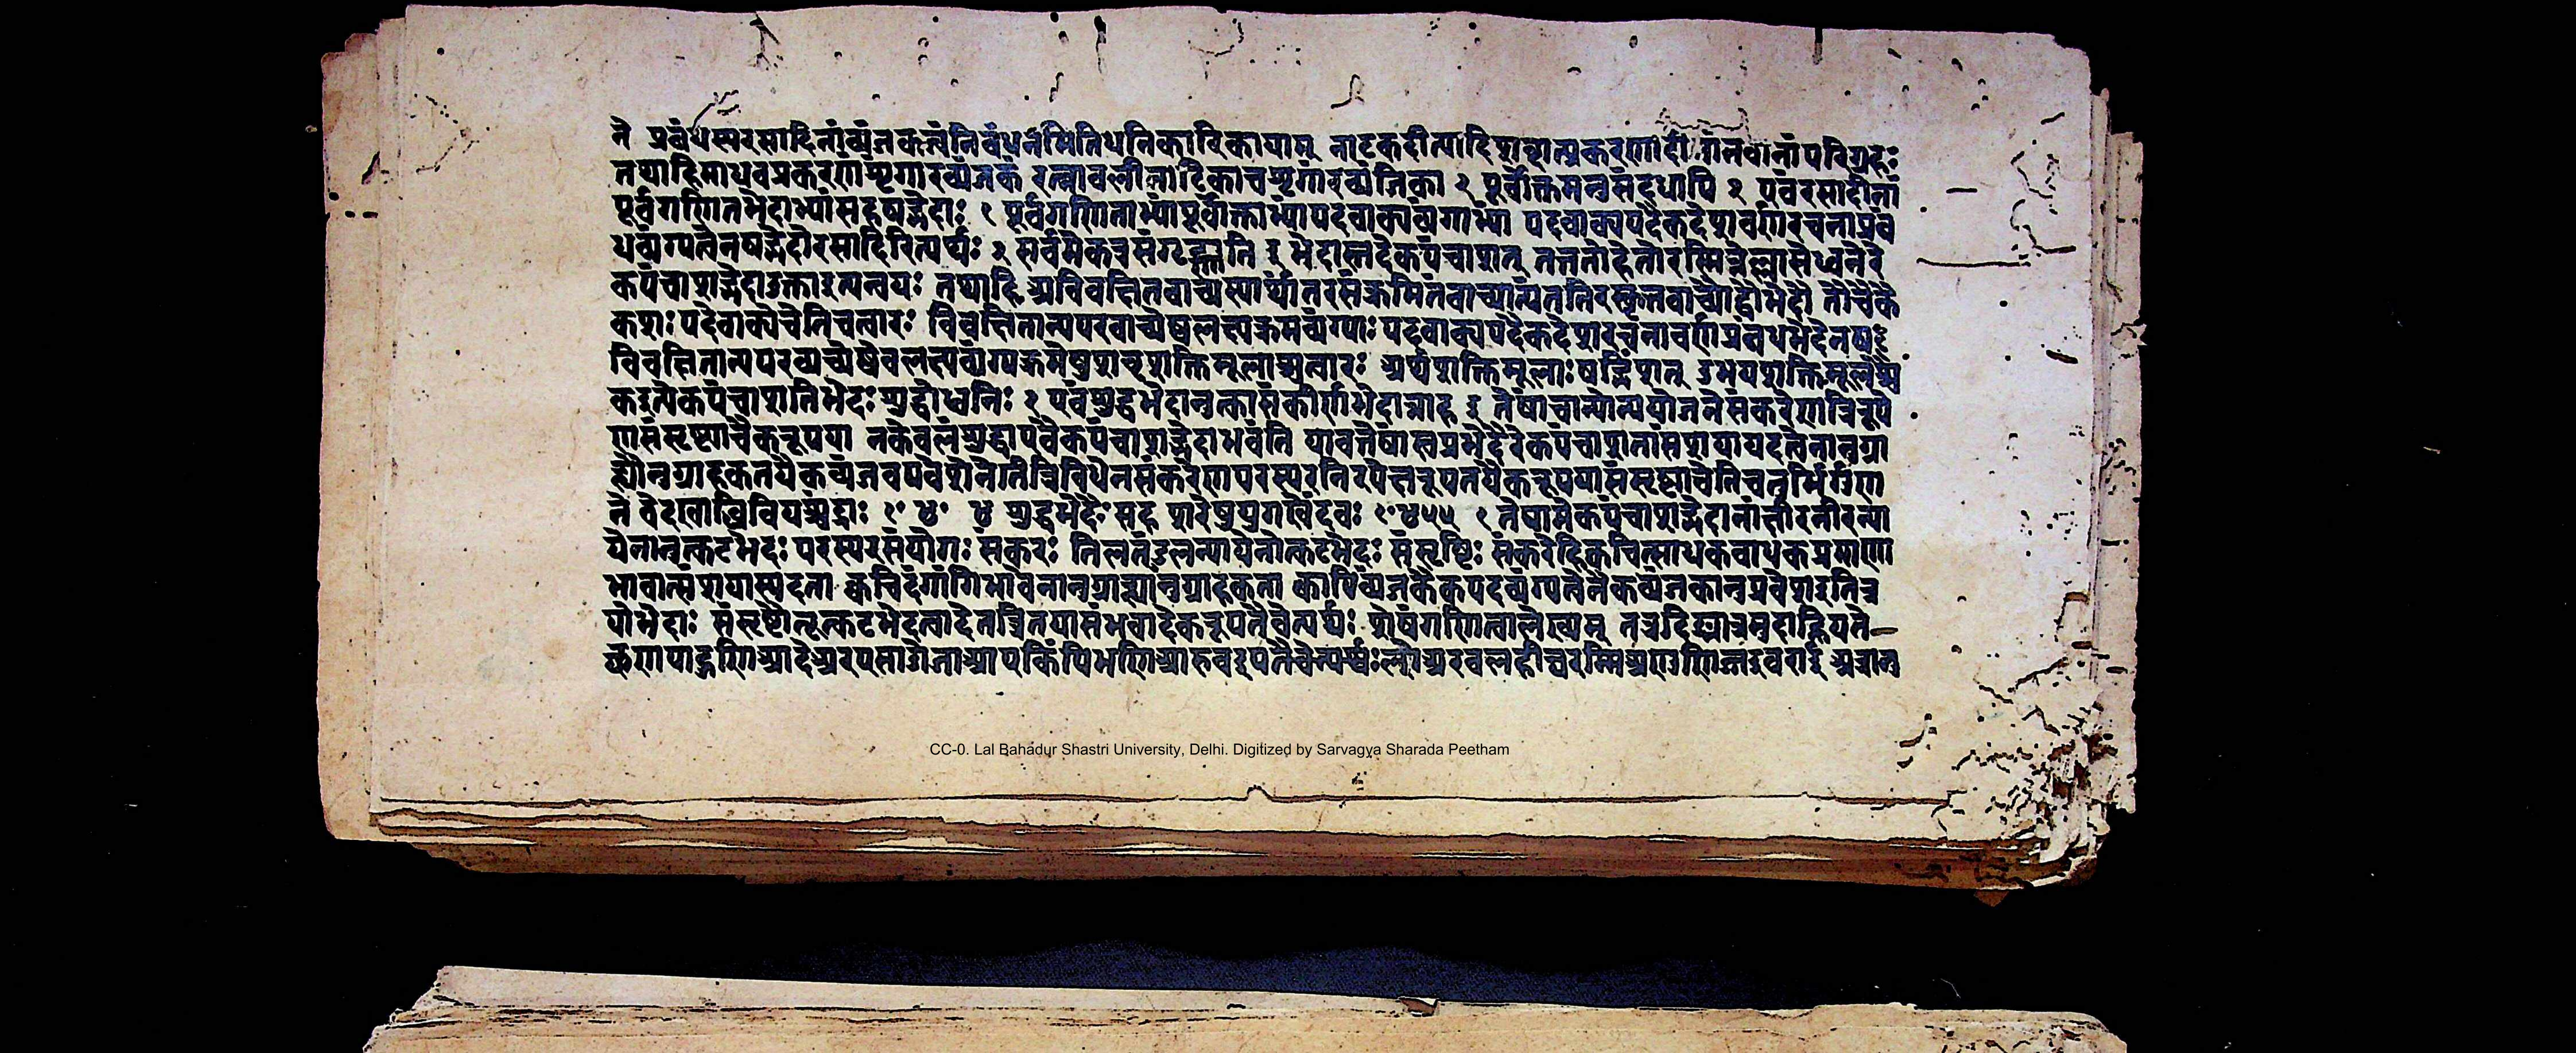 ने प्रबंधस्परसादिनांव्यंजकत्वंनिबंधनमितिधनिकारिकायाम् नाटकदीत्यादिशब्दात्प्रकरणादी नांनवानांपरिग्रहः
तथाहिमाधवप्रकरणंशृगारव्यंजकं रत्नावलीनाटिकाचशृगारव्यंजिका २ पूर्वोक्तमनुसंदधापि २ एवंरसादीनां
पूर्वगणितभेदाभ्यांसहषड्भेदाः १ पूर्वगणिताभ्यांपूर्वोक्ताभ्यांपदवाक्यव्यंगाभ्यां पदवाक्यपदैकदेशवर्णरचनाप्रबं
धव्यंग्यत्वेनषड्भेदोरसादिरित्यर्थः २ सर्वमेकत्रसंगृह्णाति ३ भेदास्तदेकपंचाशत् तत्ततोहेतोरस्मिन्नुल्लासेध्वनेरे
कपंचाशद्भेदाउक्ताइत्यन्वयः तथाहि अविवक्षितवाच्यस्यार्थांतरसंक्रमितवाच्यात्यंततिरस्कृतवाच्यौद्वौभेदौ तौचैके
कशः पदेवाक्येचेतिचत्वारः विवक्षितान्यपरवाच्येष्वलक्ष्यक्रमव्यंग्याः पदवाक्यपदैकदेशरचनावर्णप्रबंधभेदेनषट्
विवक्षितान्यपरव्यच्येषेवलक्ष्यव्यंग्यक्रमेषुशब्दशक्तिमूलाश्चत्वारः अर्थशक्तिमूलाःषट्त्रिंशत् उभयशक्तिमूलश्चै
कइत्येकपंचाशतिभेदः शुद्धोध्वनिः २ एवंशुद्धभेदानुक्तासंकीर्णभेदान्नाह ३ तेषांचान्योन्ययोजनेसंकरेणत्रिरूपे
णसंसृष्ट्याचैकरूपया नकेवलंशुद्धाएवैकपंचाशद्भेदाभवंति यावत्तेषांस्वप्रभेदैरेकपंचाशतासंशयास्पदत्वेनानुग्रा
ह्यानुग्राहकतयैकव्यंजवप्रवेशेनेतित्रिविधेनसंकरेणपरस्परनिरपेक्षरूपतयैकरूपयासंसृष्ट्याचेतिचतुर्भिर्गुण
ने वेदखाब्धिवियच्चंद्राः १०४०४ शुद्धभेदैः सह शरेषुयुगखेंदवः १०४५५ १ तेषामेकपंचाशद्भेदानांक्षीरनीरन्या
येनानुत्कटभेदः परस्परसंयोगः संकरः तिलतंडुलन्यायेनोत्कटभेदः संसृष्टिः संकरेहिक्वचित्साधकबाधकप्रमाणा
भावात्संशयास्पदता क्वचिदंगांगिभावेनानुग्राह्यानुग्राहकता क्वापिव्यंजकैकपदव्यंग्यत्वेनैकव्यंजकानुप्रवेशइतित्र
योभेदाः संसृष्टौतूत्कटभेदत्वादेतत्त्रितयासंभवादेकरूपतैवेत्यर्थः शेषंगणित्वालेख्यम् तत्रदिङ्मात्रमुदाह्रियते—